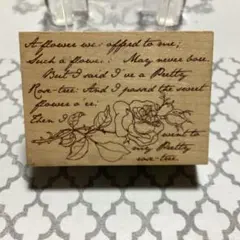 A flower was offerd to me;
Such a flower.. May never bore.
But I said I've a Pretty
Rose-tree. And I passed the sweet
flower o'er.
Then I went to
my Pretty
rose-tree.